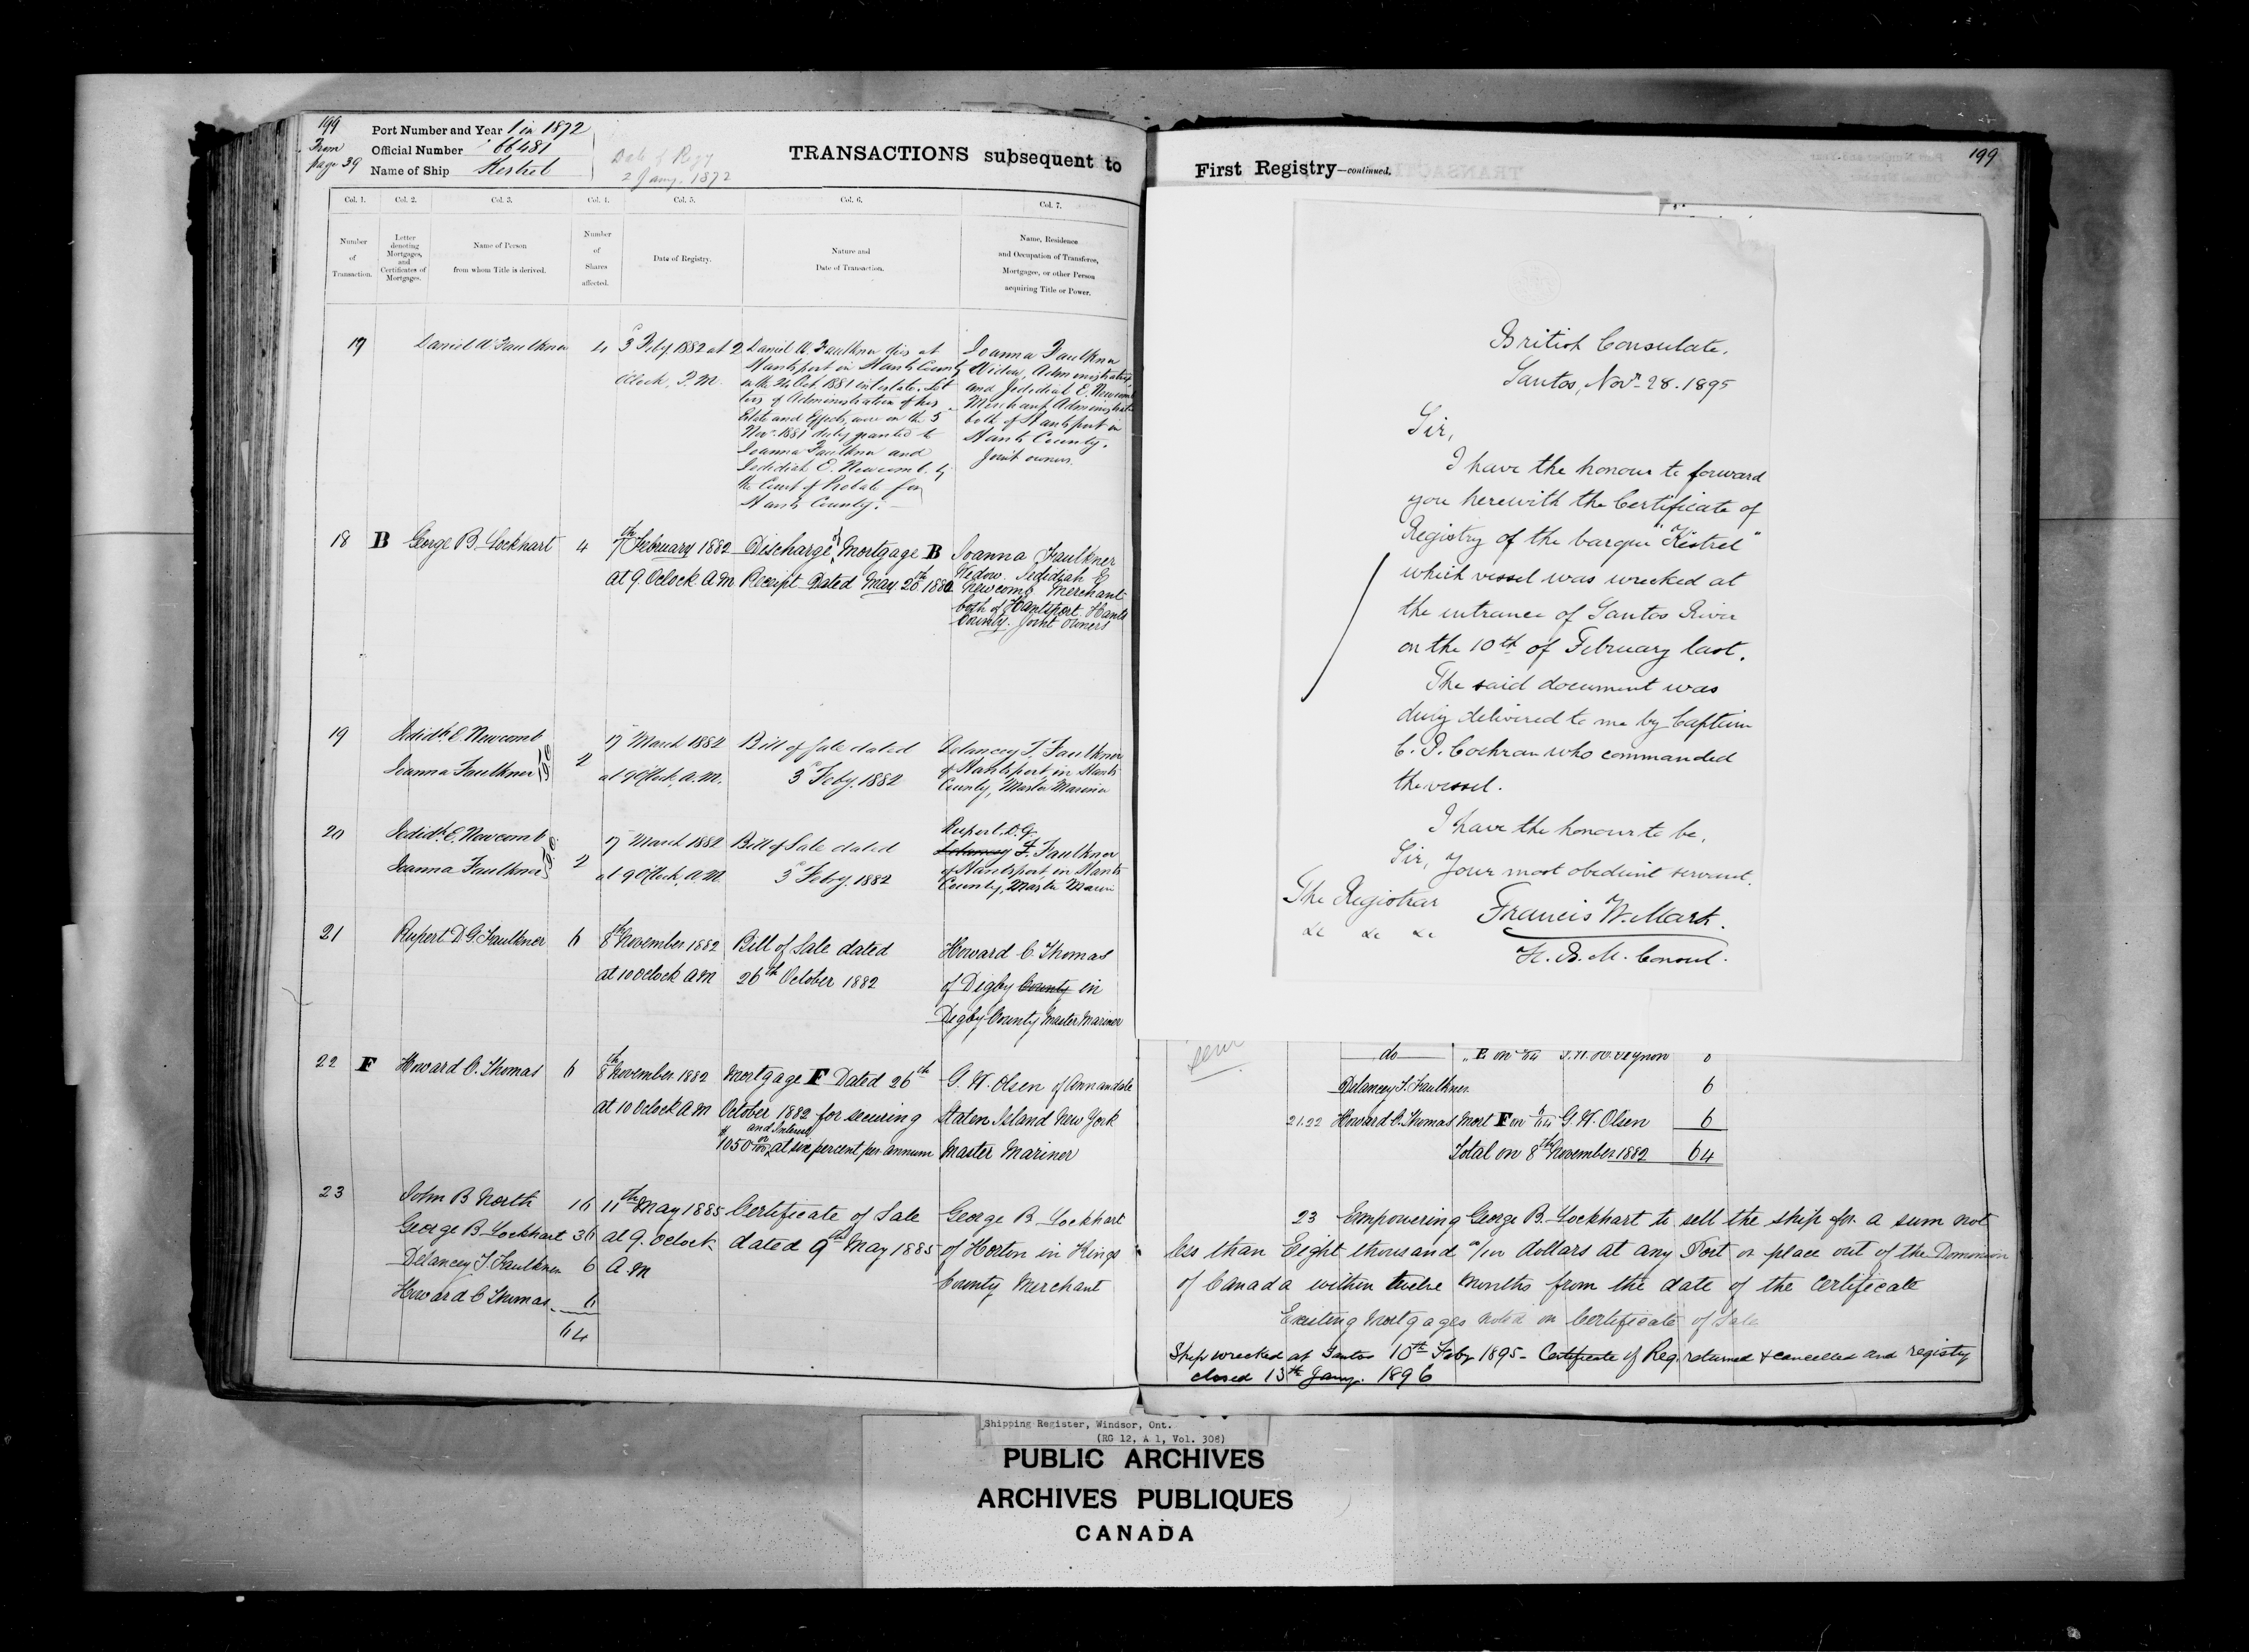 199
From
page 39
Port Number and Year 1 in 1872
Official Number 66481
Name of Ship Kestrel
Date of Regy
2 Jany. 1872
TRANSACTIONS subsequent to
Col. 1.
Col. 2.
Col. 3.
Col. 4.
Col. 5.
Col. 6.
Col. 7.
Number
of
Transaction.
Letter
denoting
Mortgages,
and
Certificates of
Mortgages.
Name of Person
from whom Title is derived.
Number
of
Shares
affected.
Date of Registry.
Nature and
Date of Transaction.
Name, Residence
and Occupation of Transferee,
Mortgagee, or other Person
acquiring Title or Power.
17
Daniel W Faulkner
4
3 Feby 1882 at 2
Oclock, P.M.
Daniel W. Faulkner died at
Hantsport in Hants County
on the 24 Oct. 1881 intestate. Let
ters of Administration of his
Estate and Effects, were on the 5
Nov. 1881 duly granted to
Joanna Faulkner and
Jedidiah E. Newcomb, by
the Court of Probate for
Hants County.
Joanna Faulkner
Widow, Administratrix,
and Jedidiah E. Newcomb
Merchant Administrator
both of Hantsport in
Hants County.
Joint owners.
18
B
George B. Lockhart
4
7th February 1882
at 9. Oclock A M
Discharge of Mortgage B
Receipt Dated May 20th 1880
Joanna Faulkner
Widow. Jedidiah E
Newcomb Merchant
both of Hantsport. Hants
County. Joint Owners
19
Jedidh. E. Newcomb
Joanna Faulkner
2
17 March 1882
at 9 Oclock, A.M.
Bill of Sale dated
3d Feby. 1882
Delancey T. Faulkner
of Hantsport, in Hants
County, Master Mariner
20
Jedidh. E. Newcomb
Joanna Faulkner
2
17 March 1882
at 9 Oclock, A.M.
Bill of Sale dated
3d Feby. 1882
Rupert. D. G.
Delancey T. Faulkner
of Hantsport in Hants
County, Master Marin
21
Rupert D. G. Faulkner
6
8th November 1882
at 10 Oclock A M
Bill of Sale dated
26th October 1882
Howard C. Thomas
of Digby County in
Digby County Master Mariner
22
F
Howard C. Thomas
6
8th November 1882
at 10 Oclock A M
Mortgage F Dated 26th
October 1882 for securing
and Interest
$1050 00/100 at six percent per annum
G. W. Olsen of Annandale
Staten Island New York
Master Mariner
23
John B North
16
George B Lockhart 36
Delancey T. Faulkner 6
Howard C Thomas 6
64
11th May 1885
at 9. Oclock
A M
Certificate of Sale
dated 9th May 1885
George B Lockhart
of Horton in Kings
County Merchant
First Registry—continued.
199
British Consulate.
Santos, Novr. 28. 1895
Sir,
I have the honour to forward
you herewith the Certificate of
Registry of the barque "Kestrel"
which vessel was wrecked at
the entrance of Santos River
on the 10th of February last.
The said document was
duly delivered to me by Captain
C. P. Cochran who commanded
the vessel.
I have the honour to be,
Sir, Your most obedient servant.
The Registrar
&c &c &c
Francis W. Mark.
H. B. M. Consul.
do
Delancey T. Faulkner
6
21.22 Howard C. Thomas Mort F on 6/64 G. W. Olsen
6
Total on 8th November 1882
64
23 Empowering George B. Lockhart to sell the ship for a sum not
les than Eight thousand 00/100 dollars at any Port or place out of the Dominion
of Canada within twelve months from the date of the certificate
Existing Mortgages noted on Certificate of Sale
Ship wrecked at Santos 10th Feby 1895 - Certificate of Reg. returned & cancelled and registry
closed 13th Jany. 1896
Shipping Register, Windsor, Ont.
(RG 12, A 1, Vol. 308)
PUBLIC ARCHIVES
ARCHIVES PUBLIQUES
CANADA